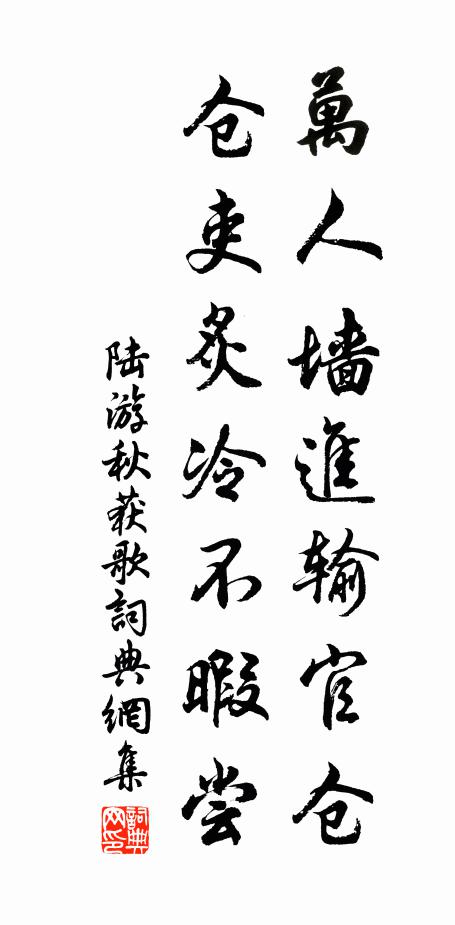 萬人墙進输官仓
仓吏炙冷不暇尝
陆游秋获歌詞典網集
詞典网印